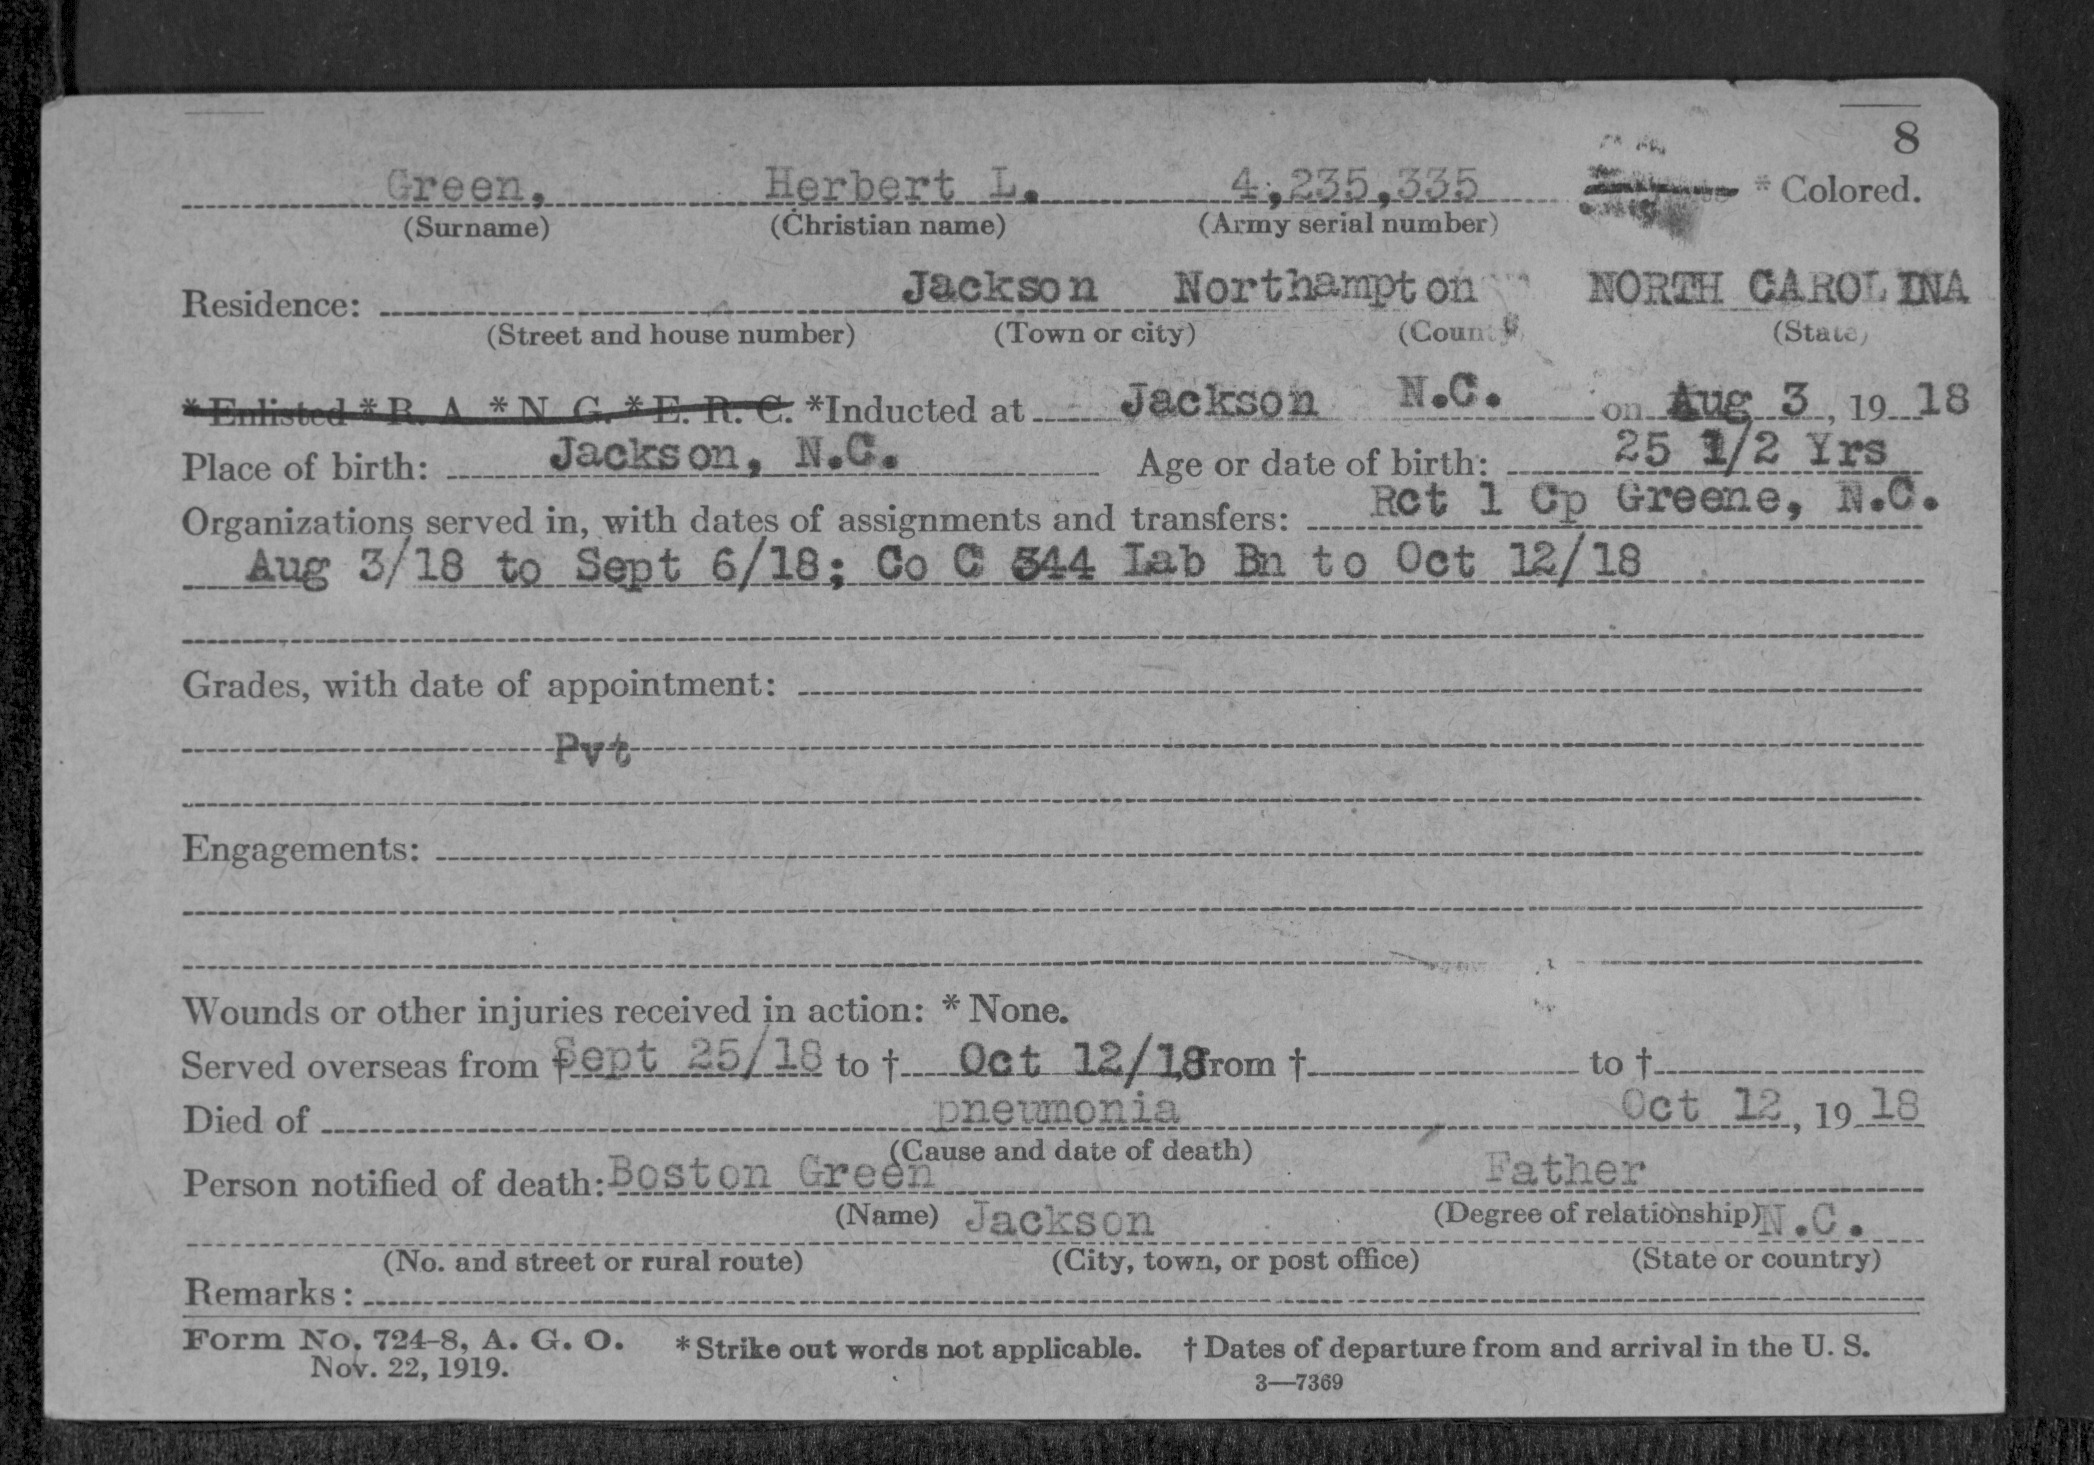 8
Green, Herbert L. 4,235,335 * Colored.
(Surname) (Christian name) (Army serial number)
Residence: Jackson Northampton NORTH CAROLINA
(Street and house number) (Town or city) (County) (State)
* Enlisted * R. A. * N. G. * E. R. C. *Inducted at Jackson N.C. on Aug 3, 19 18
Place of birth: Jackson, N.C. Age or date of birth: 25 1/2 Yrs
Organizations served in, with dates of assignments and transfers: Rct 1 Cp Greene, N.C.
Aug 3/18 to Sept 6/18; Co C 344 Lab Bn to Oct 12/18
Grades, with date of appointment:
Pvt
Engagements:
Wounds or other injuries received in action: * None.
Served overseas from † Sept 25/18 to † Oct 12/18 from † to †
Died of pneumonia Oct 12, 19 18
(Cause and date of death)
Person notified of death: Boston Green Father
(Name) (Degree of relationship)
Jackson N.C.
(No. and street or rural route) (City, town, or post office) (State or country)
Remarks:
Form No. 724-8, A. G. O. * Strike out words not applicable. † Dates of departure from and arrival in the U. S.
Nov. 22, 1919.
3—7369